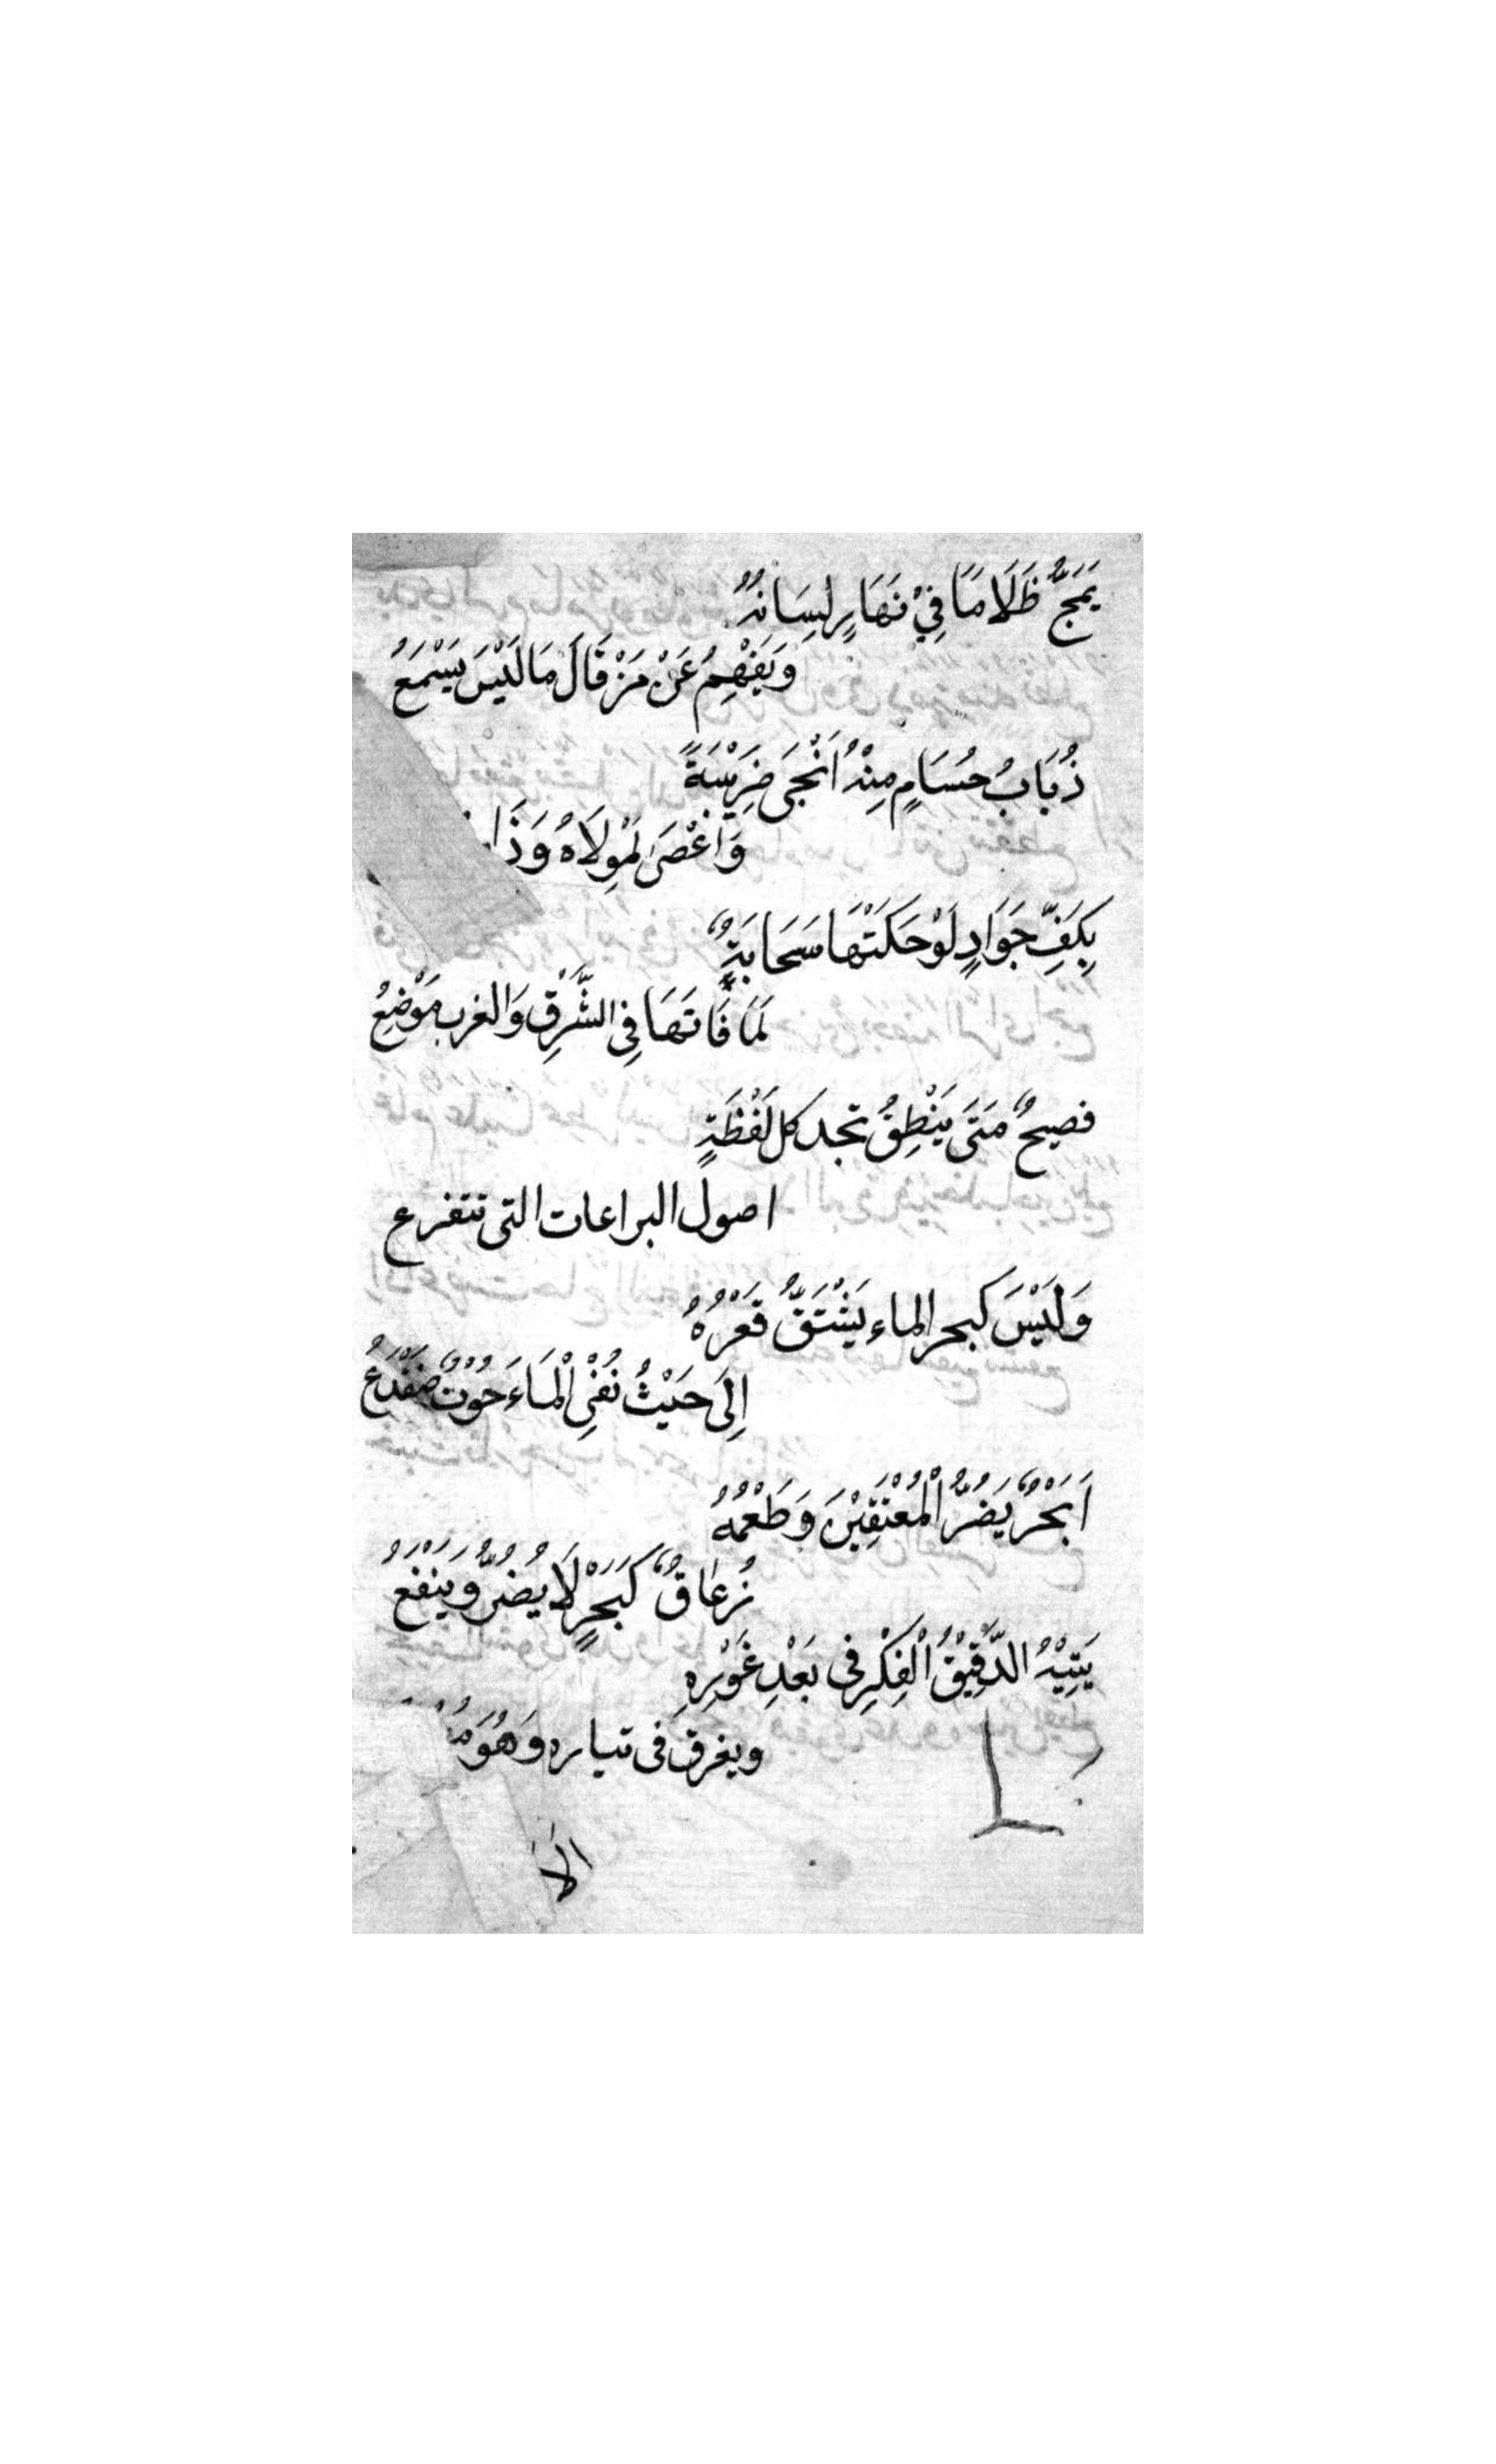 يَمَجُّ ظَلَامًا فِيْ نَهَارٍ لِسَانُهُ
وَيَفْهِمُ عَنْ مَنْ قَالَ مَا لَيْسَ يَسْمَعُ
ذُبَابُ حُسَامٍ مِنْهُ اَنْجَى ضَرِيْبَةً
وَاَعْصَى لِمَوْلَاهُ وَذَا
بِكَفِّ جَوَادٍ لَوْ حَكَتْهَا سَحَابَةٌ
لَمَا فَاتَهَا فِي الشَّرْقِ وَالغرب مَوْضِعُ
فصيحٌ مَتَى يَنْطِقُ تجد كل لَفْظَةٍ
اصول البراعات التى تتفرع
وَلَيْسَ كبحر الماء يَشْتَقُّ قَعْرُهُ
اِلَى حَيْثُ نُفْنِي الْمَاءَ حُوْتٌ ضِفْدَعُ
اَبَحْرٌ يَضُرُّ الْمُعْتَفِيْنَ وَطَعْمُهُ
زُعَاقٌ كَبَحْرٍ لَا يُضُرُّ وَيَنْفَعُ
يَتِيْهُ الدَّقِيْقُ الْفِكْرِ فى بَعْدِ غَوْرِهِ
ويغرق فى تياره وَهُوَ
الا